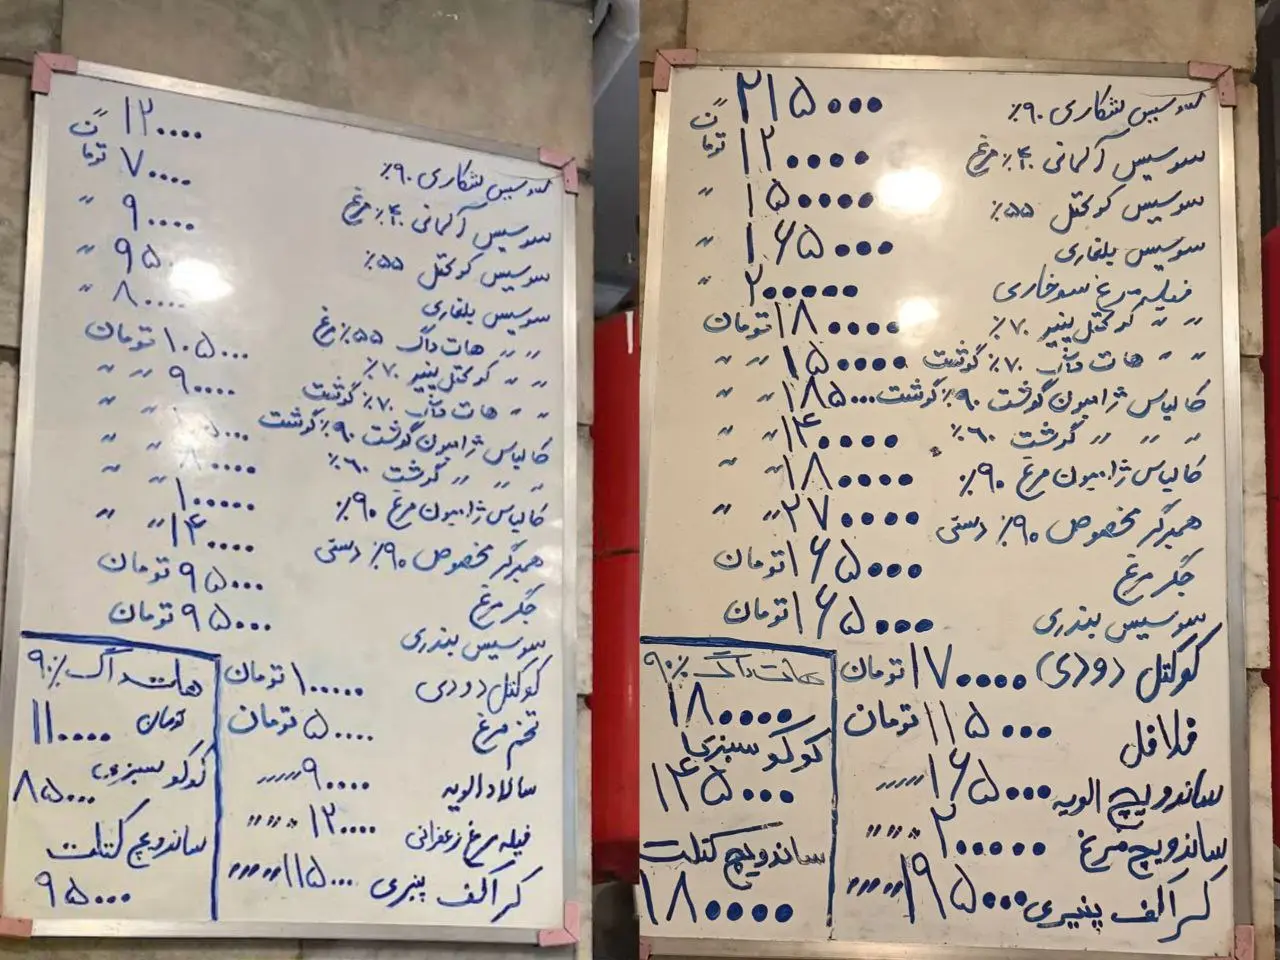 سوسیس شکاری ۹۰٪ ۱۲۰۰۰۰ ت
سوسیس آلمانی ۴۰٪ مرغ ۷۰۰۰۰ تومان
سوسیس کوکتل ۵۵٪ ۹۰۰۰۰ "
سوسیس بلغاری ۹۵۰ "
" " هات داگ ۵۵٪ مرغ ۸۰۰۰۰ "
" " کوکتل پنیر ۷۰٪ ۱۰۵۰۰۰ تومان
" " هات داگ ۷۰٪ گوشت ۹۰۰۰۰ " "
کالباس ژامبون گوشت ۹۰٪ گوشت
" " " گوشت ۶۰٪ ۸۰۰۰۰ " "
کالباس ژامبون مرغ ۹۰٪ ۱۰۰۰۰۰ " "
همبرگر مخصوص ۹۰٪ دستی ۱۴۰۰۰۰ " "
جگر مرغ ۹۵۰۰۰ تومان
سوسیس بندری ۹۵۰۰۰ تومان
کوکتل دودی ۱۰۰۰۰۰ تومان
تخم مرغ ۵۰۰۰۰ تومان
سالاد الویه ۹۰۰۰۰ """"
فیله مرغ زعفرانی ۱۲۰۰۰۰ """
کراکف پنیری ۱۱۵۰۰۰ """"
هات داگ ۹۰٪
۱۱۰۰۰۰ تومان
کوکو سبزی
۸۵۰۰۰
ساندویچ کتلت
۹۵۰۰۰
سوسیس شکاری ۹۰٪ ۲۱۵۰۰۰ ت
سوسیس آلمانی ۴۰٪ مرغ ۱۲۰۰۰۰ تومان
سوسیس کوکتل ۵۵٪ ۱۵۰۰۰۰ "
سوسیس بلغاری ۱۶۵۰۰۰ "
فیله مرغ سوخاری ۲۰۰۰۰۰ "
" " کوکتل پنیر ۷۰٪ ۱۸۰۰۰۰ تومان
" " هات داگ ۷۰٪ گوشت ۱۵۰۰۰۰ " "
کالباس ژامبون گوشت ۹۰٪ گوشت ۱۸۵۰۰۰ " "
" " " گوشت ۶۰٪ ۱۴۰۰۰۰ " "
کالباس ژامبون مرغ ۹۰٪ ۱۸۰۰۰۰ " "
همبرگر مخصوص ۹۰٪ دستی ۲۷۰۰۰۰ " "
جگر مرغ ۱۶۵۰۰۰ تومان
سوسیس بندری ۱۶۵۰۰۰ تومان
کوکتل دودی ۱۷۰۰۰۰ تومان
فلافل ۱۱۵۰۰۰ تومان
ساندویچ الویه ۱۶۵۰۰۰ """"
ساندویچ مرغ ۲۰۰۰۰۰ """
کراکف پنیری ۱۹۵۰۰۰ """"
هات داگ ۹۰٪
۱۸۰۰۰۰
کوکو سبزی
۱۴۵۰۰۰
ساندویچ کتلت
۱۸۰۰۰۰